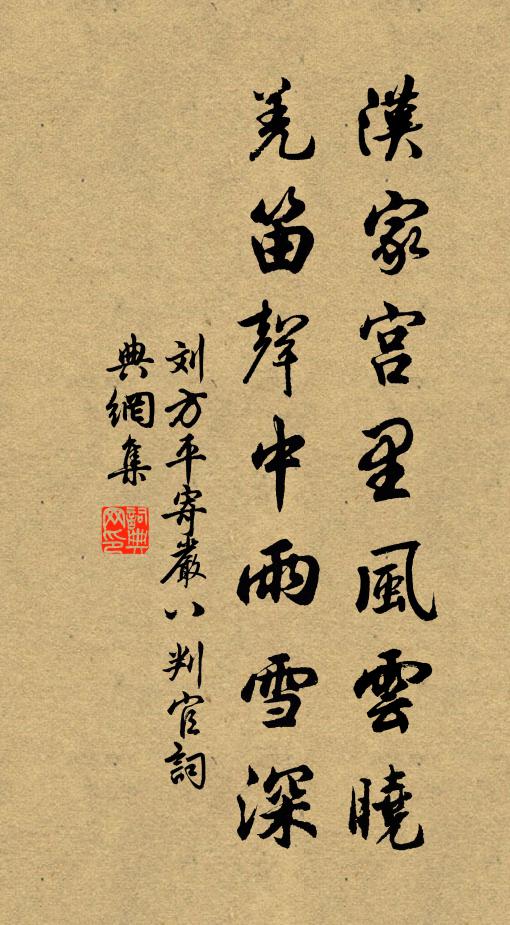 漢家宮里風雲曉
羌笛聲中雨雪深
刘方平寄嚴八判官詞
典網集
詞典
网印